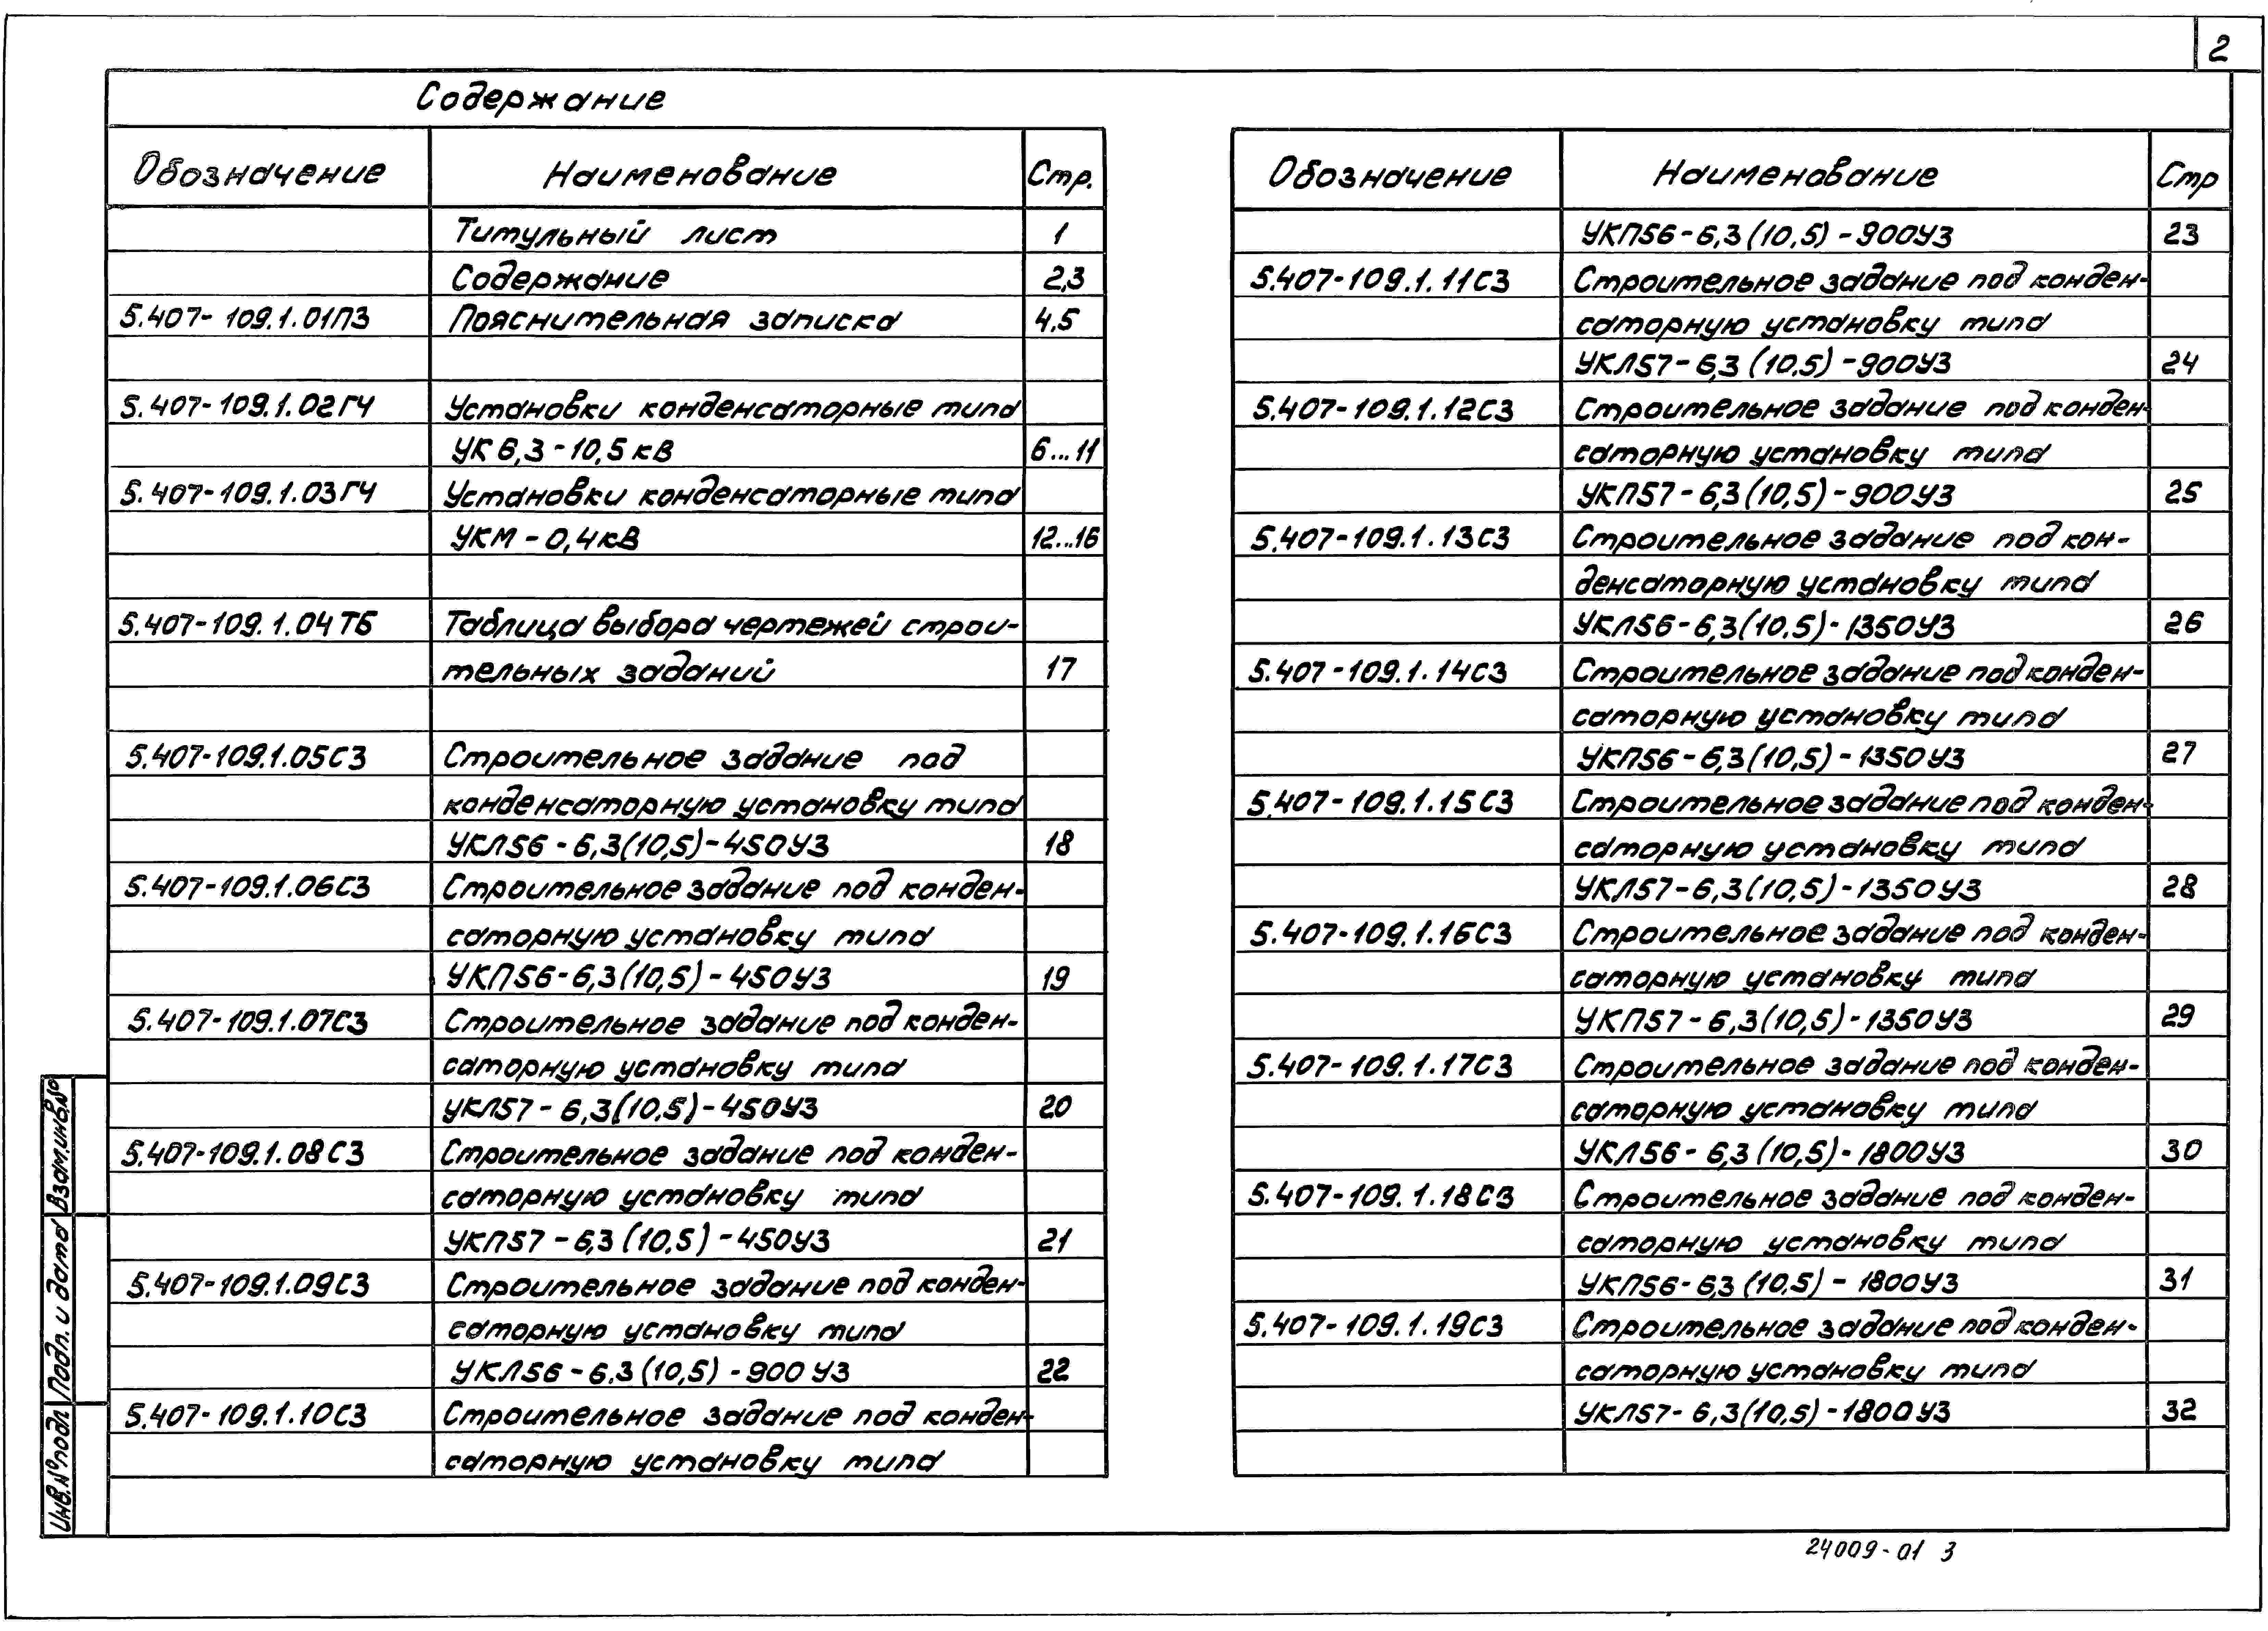 2
Содержание
Обозначение Наименование Стр.
Титульный лист 1
Содержание 2,3
5.407-109.1.01ПЗ Пояснительная записка 4,5
5.407-109.1.02ГЧ Установки конденсаторные типа
УК 6,3-10,5 кВ 6...11
5.407-109.1.03ГЧ Установки конденсаторные типа
УКМ-0,4кВ 12...16
5.407-109.1.04ТБ Таблица выбора чертежей строи-
тельных заданий 17
5.407-109.1.05СЗ Строительное задание под
конденсаторную установку типа
УКЛ56-6,3(10,5)-450У3 18
5.407-109.1.06СЗ Строительное задание под конден-
саторную установку типа
УКП56-6,3(10,5)-450У3 19
5.407-109.1.07СЗ Строительное задание под конден-
саторную установку типа
УКЛ57-6,3(10,5)-450У3 20
5.407-109.1.08СЗ Строительное задание под конден-
саторную установку типа
УКП57-6,3(10,5)-450У3 21
5.407-109.1.09СЗ Строительное задание под конден-
саторную установку типа
УКЛ56-6.3(10,5)-900У3 22
5.407-109.1.10СЗ Строительное задание под конден-
саторную установку типа
Обозначение Наименование Стр
УКП56-6,3(10,5)-900У3 23
5.407-109.1.11СЗ Строительное задание под конден-
саторную установку типа
УКЛ57-6,3(10,5)-900У3 24
5.407-109.1.12СЗ Строительное задание под конден-
саторную установку типа
УКП57-6,3(10,5)-900У3 25
5.407-109.1.13СЗ Строительное задание под кон-
денсаторную установку типа
УКЛ56-6,3(10,5)-1350У3 26
5.407-109.1.14СЗ Строительное задание под конден-
саторную установку типа
УКП56-6,3(10,5)-1350У3 27
5.407-109.1.15СЗ Строительное задание под конден-
саторную установку типа
УКЛ57-6,3(10,5)-1350У3 28
5.407-109.1.16СЗ Строительное задание под конден-
саторную установку типа
УКП57-6,3(10,5)-1350У3 29
5.407-109.1.17СЗ Строительное задание под конден-
саторную установку типа
УКЛ56-6,3(10,5)-1800У3 30
5.407-109.1.18СЗ Строительное задание под конден-
саторную установку типа
УКП56-6,3(10,5)-1800У3 31
5.407-109.1.19СЗ Строительное задание под конден-
саторную установку типа
УКЛ57-6,3(10,5)-1800У3 32
Взам.инв.№
Подп. и дата
Инв.№подл
24009-01 3